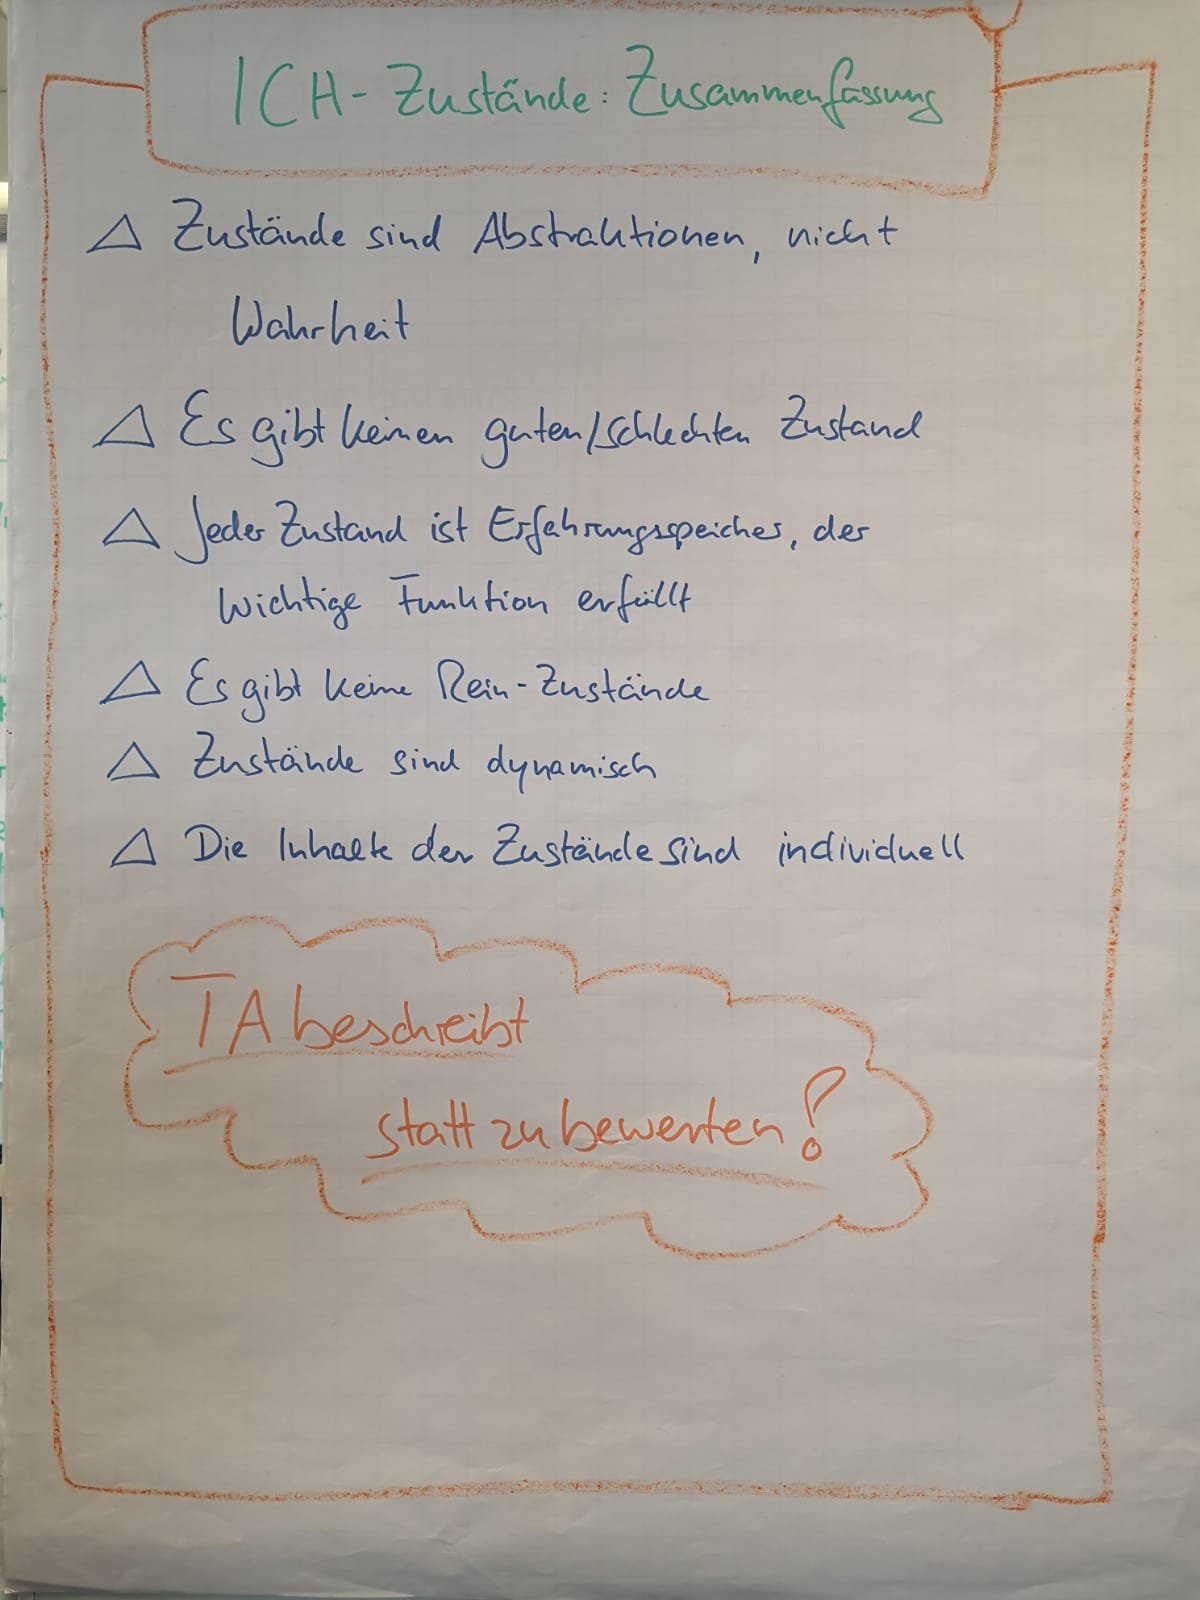 ICH-Zustände: Zusammenfassung
△ Zustände sind Abstraktionen, nicht
Wahrheit
△ Es gibt keinen guten/schlechten Zustand
△ Jeder Zustand ist Erfahrungsspeicher, der
wichtige Funktion erfüllt
△ Es gibt keine Rein-Zustände
△ Zustände sind dynamisch
△ Die Inhalte der Zustände sind individuell
TA beschreibt
statt zu bewerten!